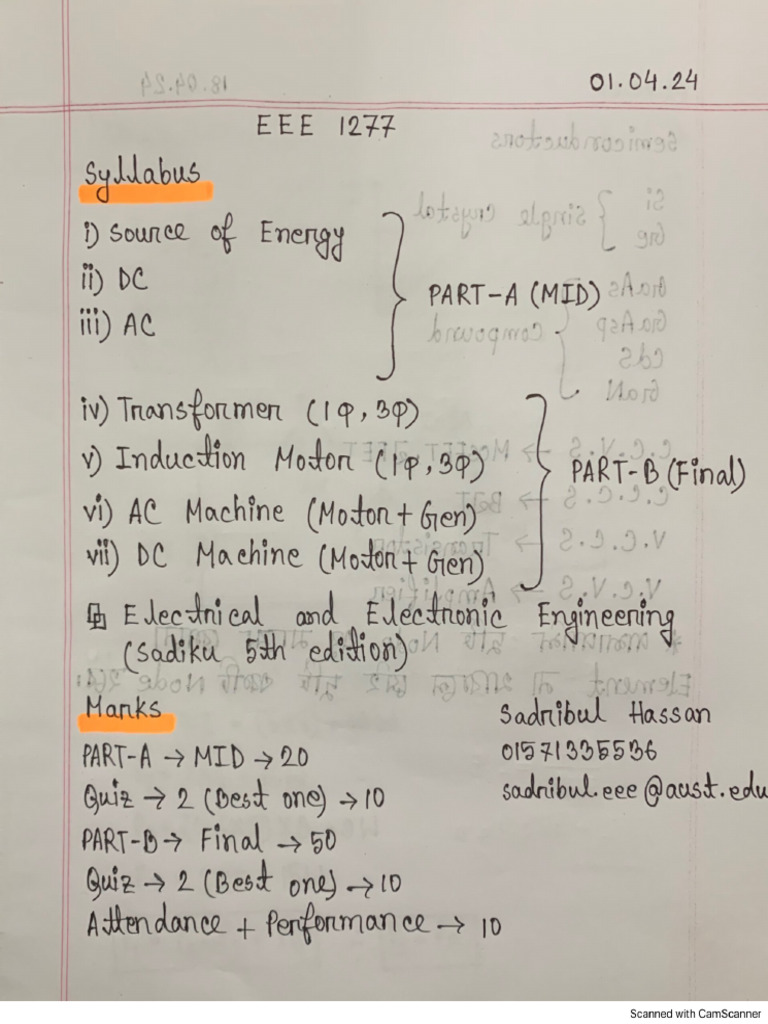 01.04.24
EEE 1277
Syllabus
i) Source of Energy
ii) DC
iii) AC
PART-A (MID)
iv) Transformer (1φ, 3φ)
v) Induction Motor (1φ, 3φ)
vi) AC Machine (Motor + Gen)
vii) DC Machine (Motor + Gen)
PART-B (Final)
Electrical and Electronic Engineering
(Sadiku 5th edition)
Marks
PART-A → MID → 20
Quiz → 2 (Best one) → 10
PART-B → Final → 50
Quiz → 2 (Best one) → 10
Attendance + Performance → 10
Sadribul Hassan
01571335536
sadribul.eee@aust.edu
Scanned with CamScanner